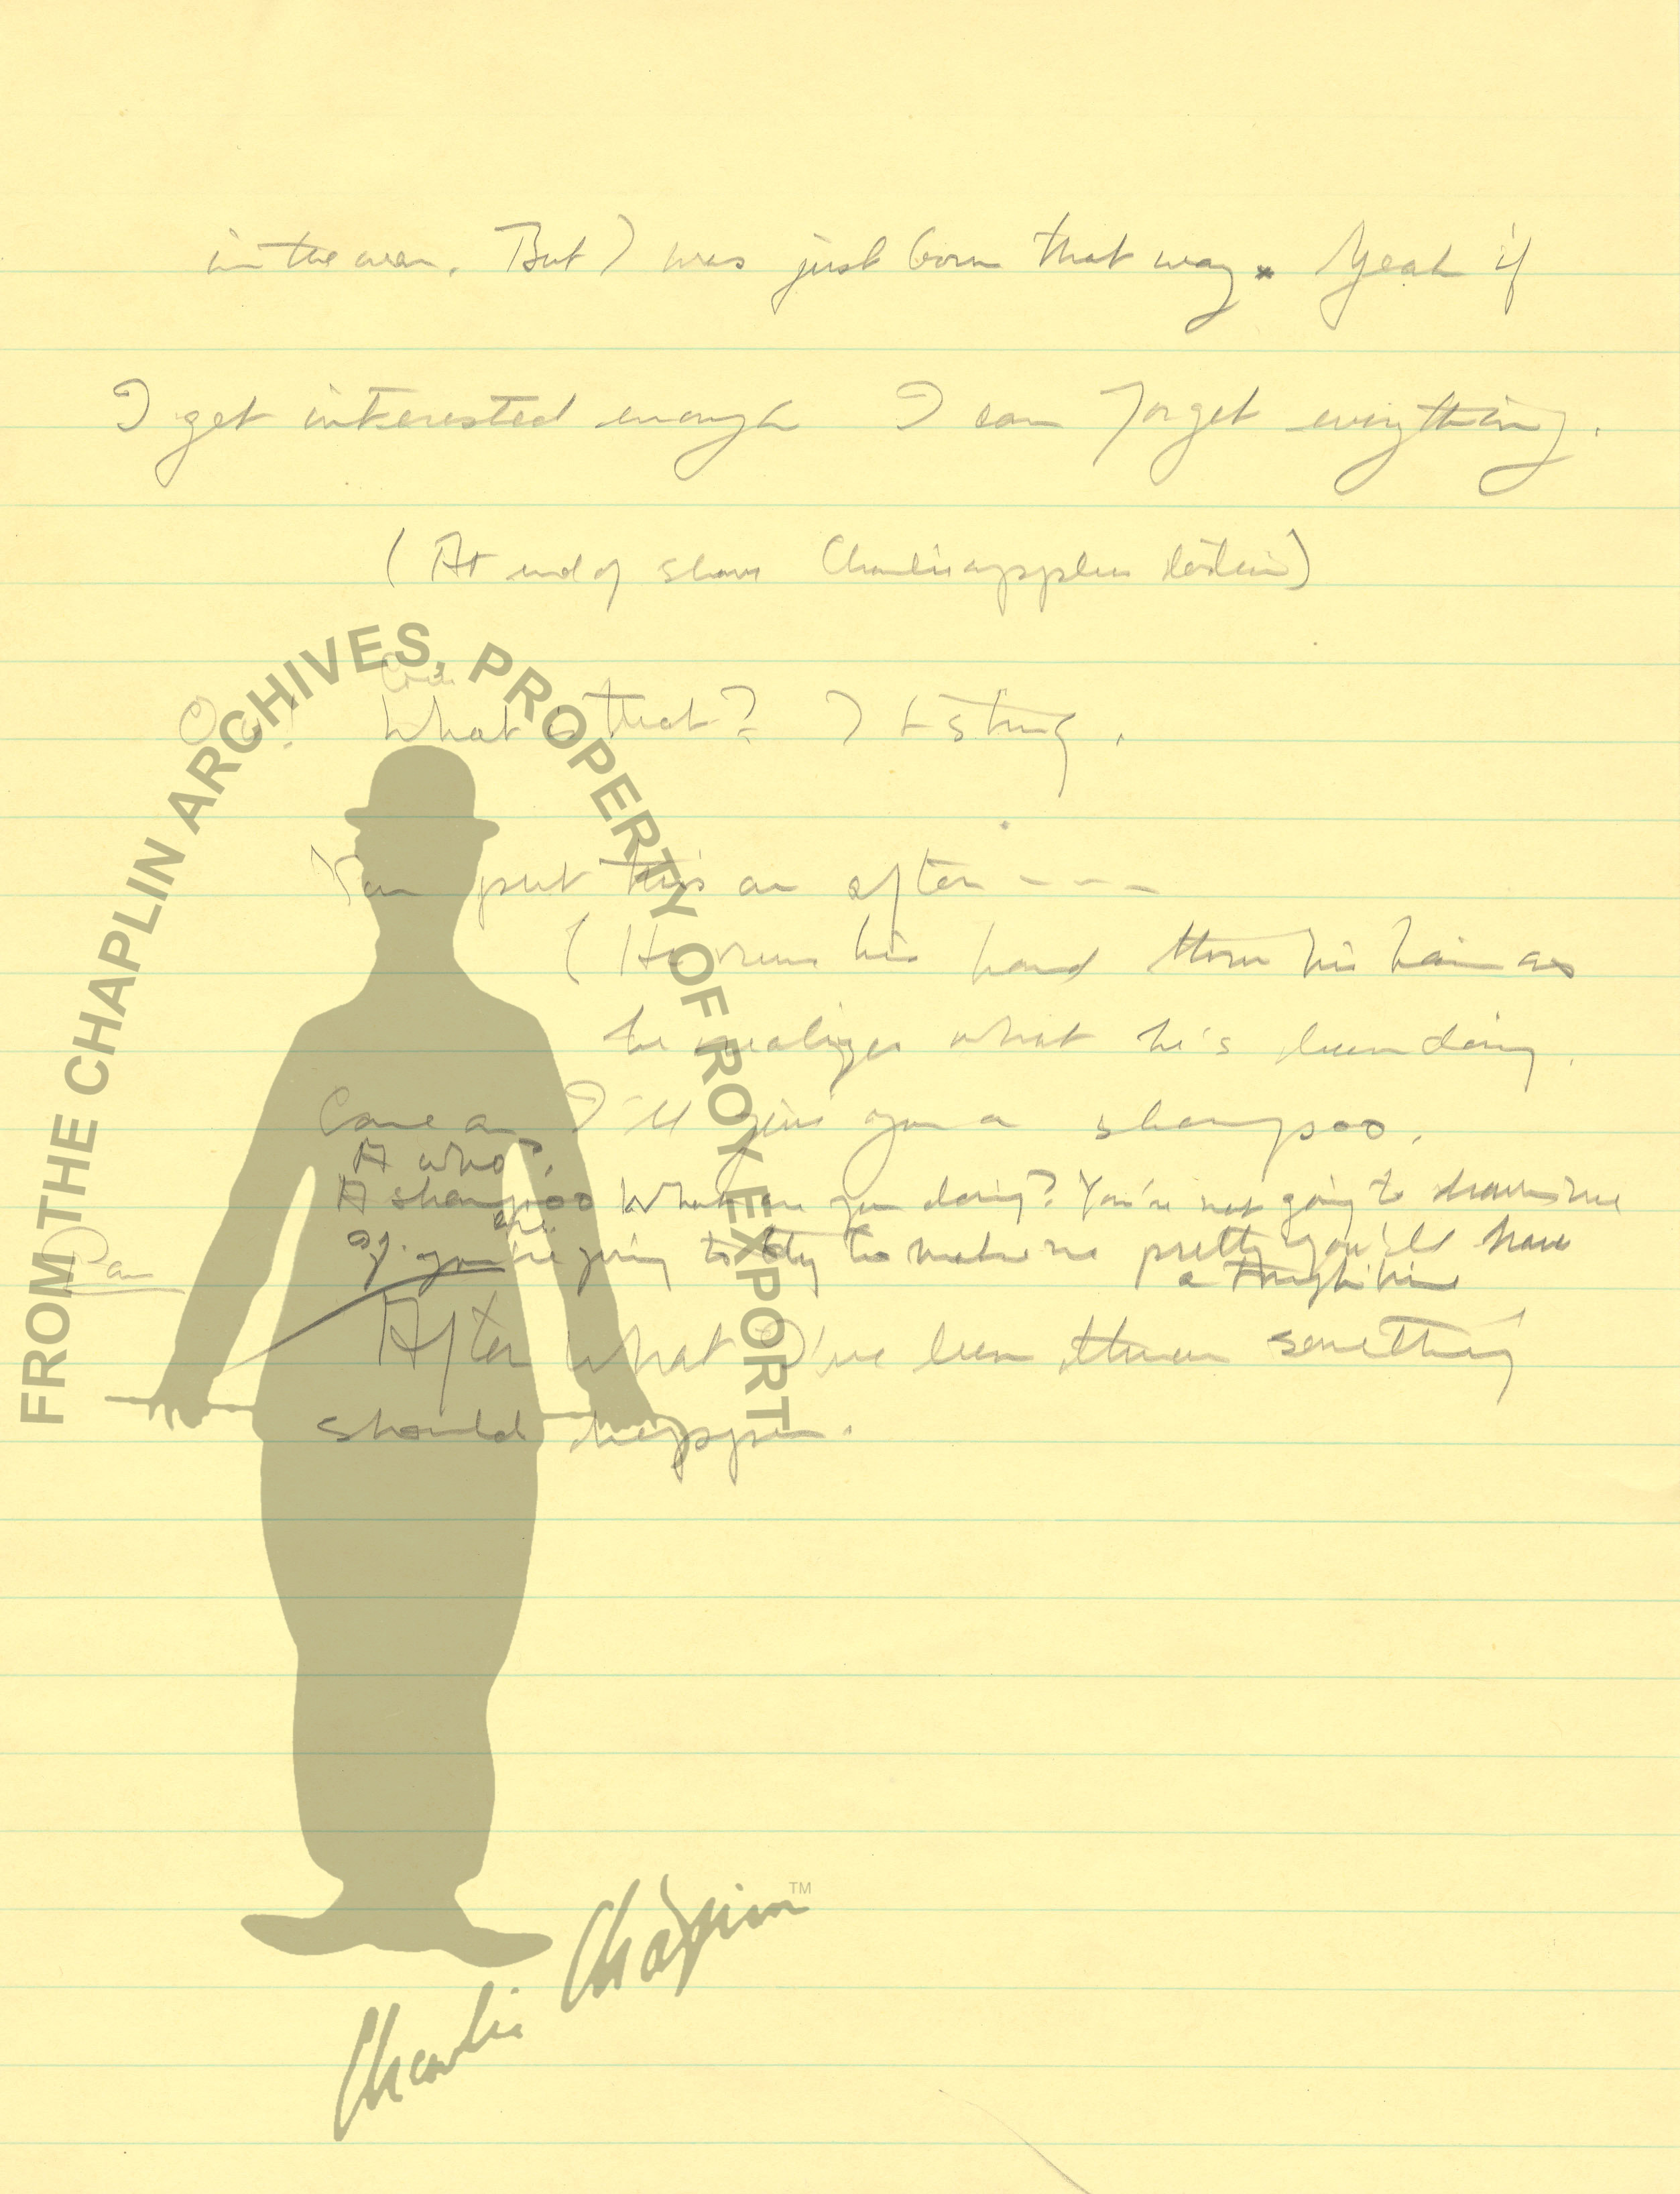 in the war. But I was just born that way. Yeah if
I get interested enough I can forget everything.
(At end of shave Charlie applies lotion)
Ow! What is that? It stings.
You put this on after ---
(He runs his hand thru his hair as
he realizes what he's been doing.
Come on, I'll give you a shampoo.
A who?
A shampoo What are you doing? You're not going to me
If you're going to try to make me pretty you'll have
a tough time
After what I've been thru something
should happen.
FROM THE CHAPLIN ARCHIVES, PROPERTY OF ROY EXPORT
Charlie Chaplin TM